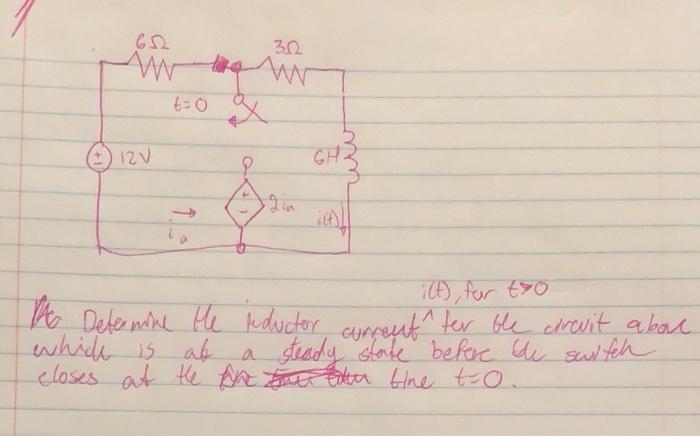 6Ω 3Ω
t=0
12V 6H
2ia i(t)
ia
i(t), for t>0
Determine the inductor current ^ for the circuit above
which is at a steady state before the switch
closes at the time t=0.